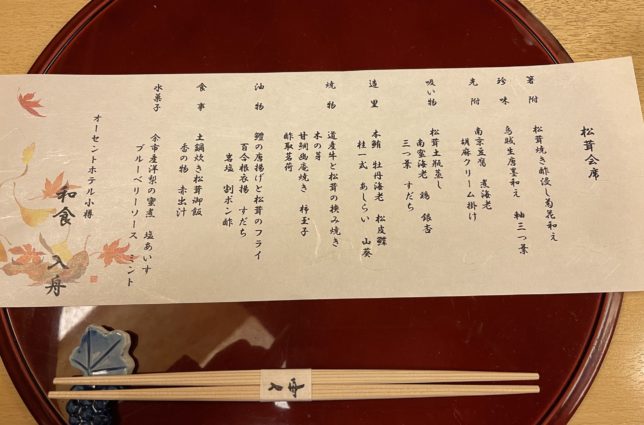 松茸会席
箸附
松茸焼き酢浸し菊花和え
珍味
烏賊生唐墨和え 軸三つ葉
先附
南京豆腐 煮海老
胡麻クリーム掛け
吸い物
松茸土瓶蒸し
南蛮海老 鶏 銀杏
三つ葉 すだち
造里
本鮪 牡丹海老 松皮鰈
桂一式 あしらい 山葵
焼物
道産牛と松茸の挟み焼き
木の芽
甘鯛幽庵焼き 柿玉子
酢取茗荷
油物
鱧の唐揚げと松茸のフライ
百合根衣揚 すだち
岩塩 割ポン酢
食事
土鍋炊き松茸御飯
香の物 赤出汁
水菓子
余市産洋梨の蜜煮 塩あいす
ブルーベリーソース ミント
オーセントホテル小樽
和食 入舟
入舟